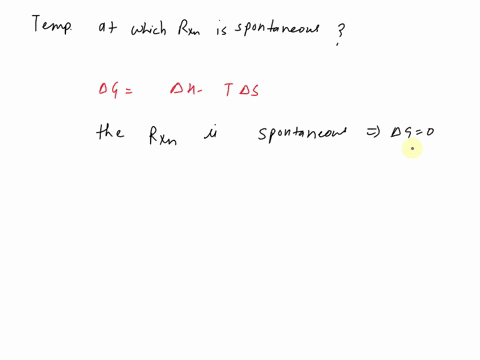 Temp at which Rxn is spontaneous ?
ΔG = ΔH - TΔS
the Rxn is spontaneous ⇒ ΔG = 0